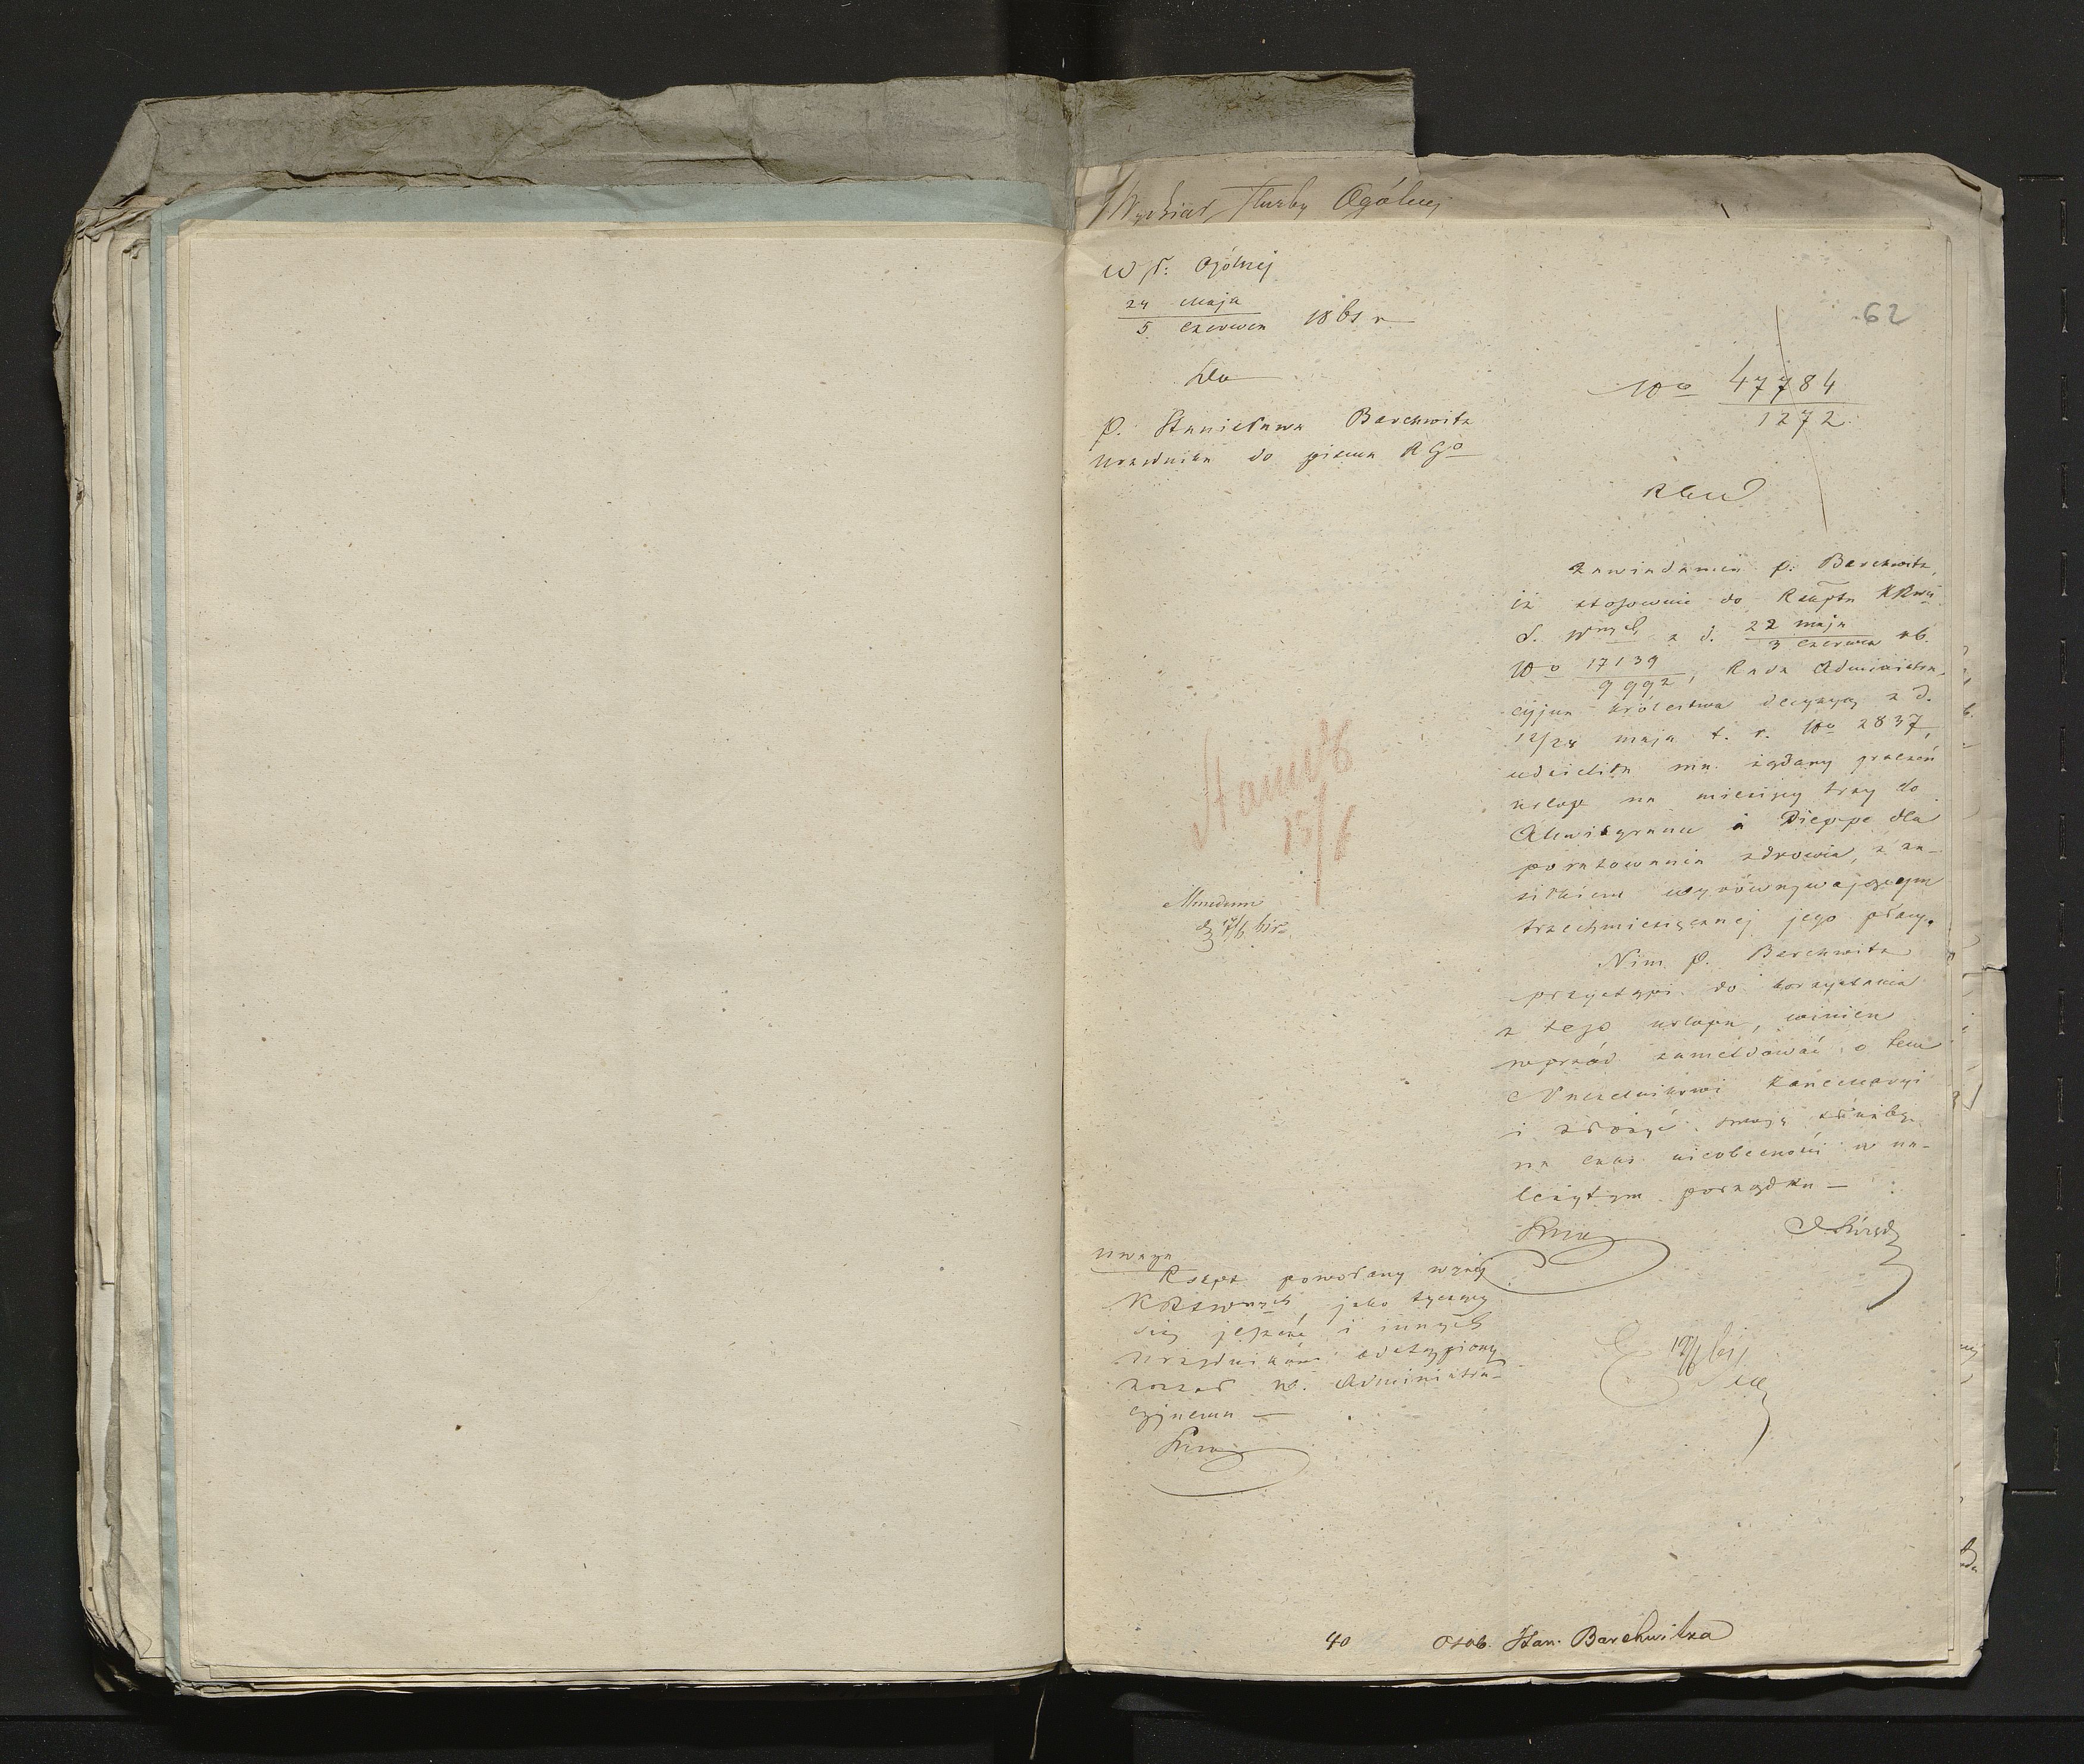 Wydział Służby Ogólnej
W S: Ogólnej
24 Maja
5 Czerwca 1861 r
62
Do
No 47784
1272
P. Stanisława Barchwitz
Urzędnika do pisma RGo
zawiadamia p. Barchwitz,
iż stosownie do Reskptu KR
S. z d. 22 maja
3 czerwca rb.
No 17139
9992, Rada Administra
cyjna Królestwa decyzyą z d.
12/24 maja t. r. No 2837,
udzieliła mu żądany przezeń
urlop na miesięcy trzy do
Akwisgranu i Dieppe dla
poratowania zdrowia, z za-
siłkiem wyrównywającym
trzechmiesięcznej jego płacy.
Nim P. Barchwitz
przystąpi do korzystania
z tego urlopu, winien
wprzód zameldować o tem
Naczelnikowi Kancellaryi
i złożyć swoją służbę
na czas nieobecności w na-
leżytym porządku —
Uwaga
Reskpt powołany wyżej
jako tyczący
się jeszcze i innych
Urzędników odstąpiony
został W. Administra-
cyjnemu —
40 Osob. Stan. Barchwitza